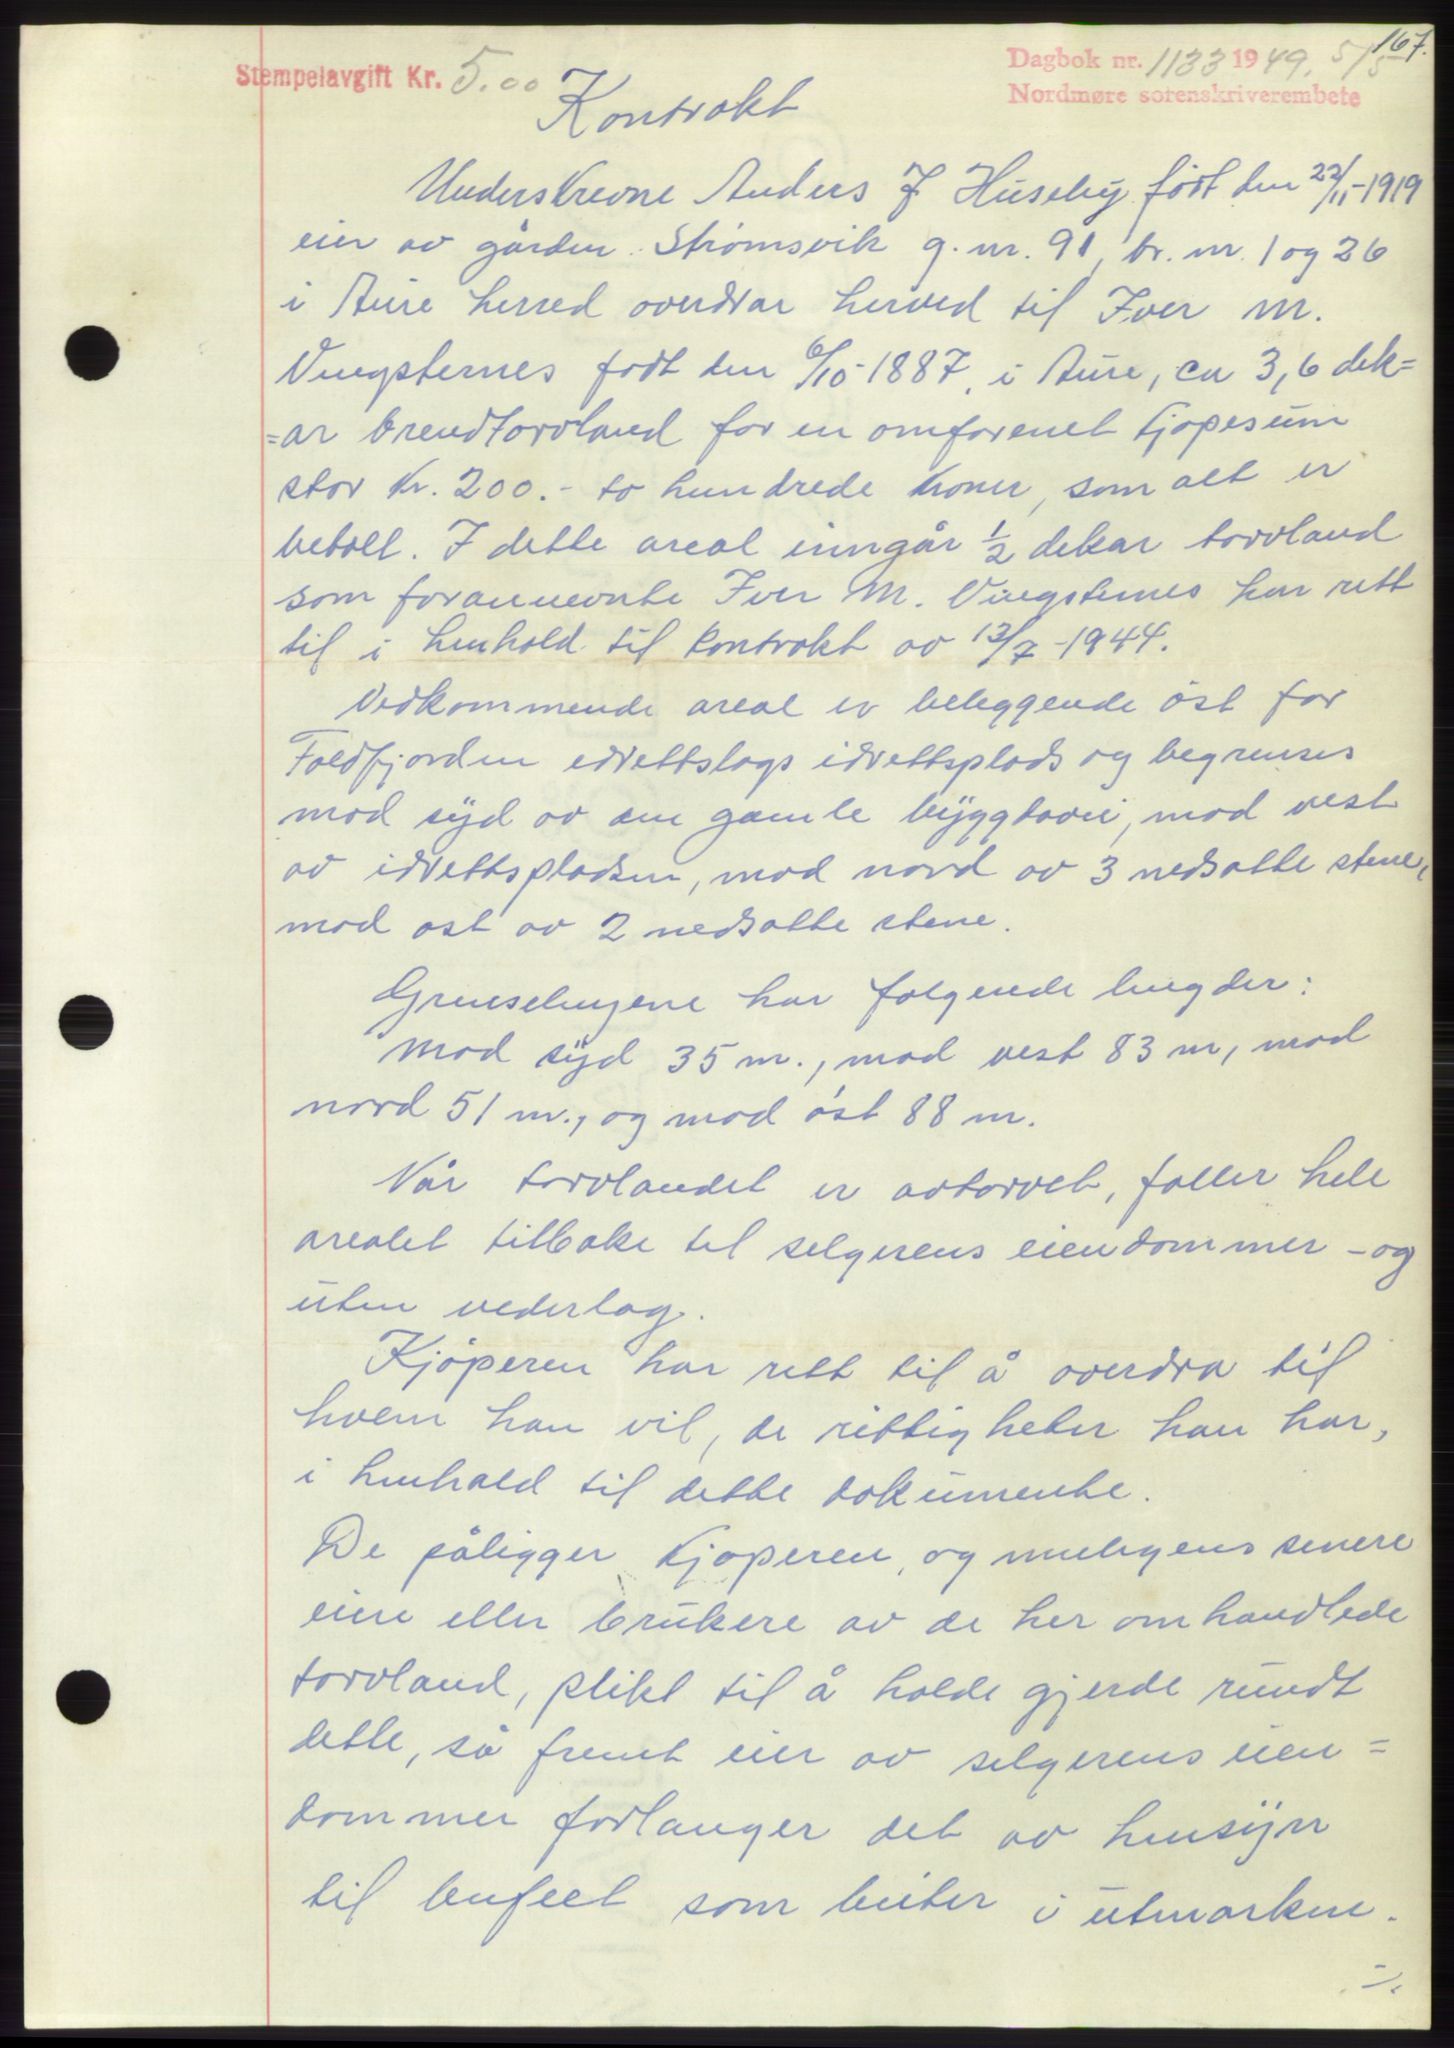 167.
Stempelavgift Kr. 5.00
Dagbok nr. 1133 1949. 5/5
Nordmøre sorenskriverembete
Kontrakt
Underskrevne Anders J Huseby født den 22/11-1919
eier av gården Strømsvik g.nr. 91, br.nr. 1 og 26
i Aure herred overdrar herved til Iver M.
Vingsternes født den 6/10-1887, i Aure, ca 3,6 dek=
=ar brendtorvland for en omforenet kjøpesum
stor kr. 200.- to hundrede kroner, som alt er
betalt. I dette areal inngår 1/2 dekar torvland
som forannevnte Iver M. Vingsternes har rett
til i henhold til kontrakt av 13/7-1944.
Vedkommende areal er beliggende øst for
Foldfjorden idrettslags idrettsplads og begrenses
mod syd av den gamle byggdavei, mod vest
av idrettspladsen, mod nord av 3 nedsatte stene,
mod øst av 2 nedsatte stene.
Grenselinjene har følgende lengder:
Mod syd 35 m., mod vest 83 m, mod
nord 51 m., og mod øst 88 m.
Når torvlandet er avtorvet, faller hele
arealet tilbake til selgerens eiendommer - og
uten vederlag.
Kjøperen har rett til å overdra til
hvem han vil, de rettigheter han har,
i henhold til dette dokumente.
De påligger kjøperen, og muligens senere
eiere eller brukere av de her omhandlede
torvland, plikt til å holde gjerde rundt
dette, så fremt eier av selgerens eien=
dommer forlanger det av hensyn
til bufeet som beiter i utmarken.
-/.